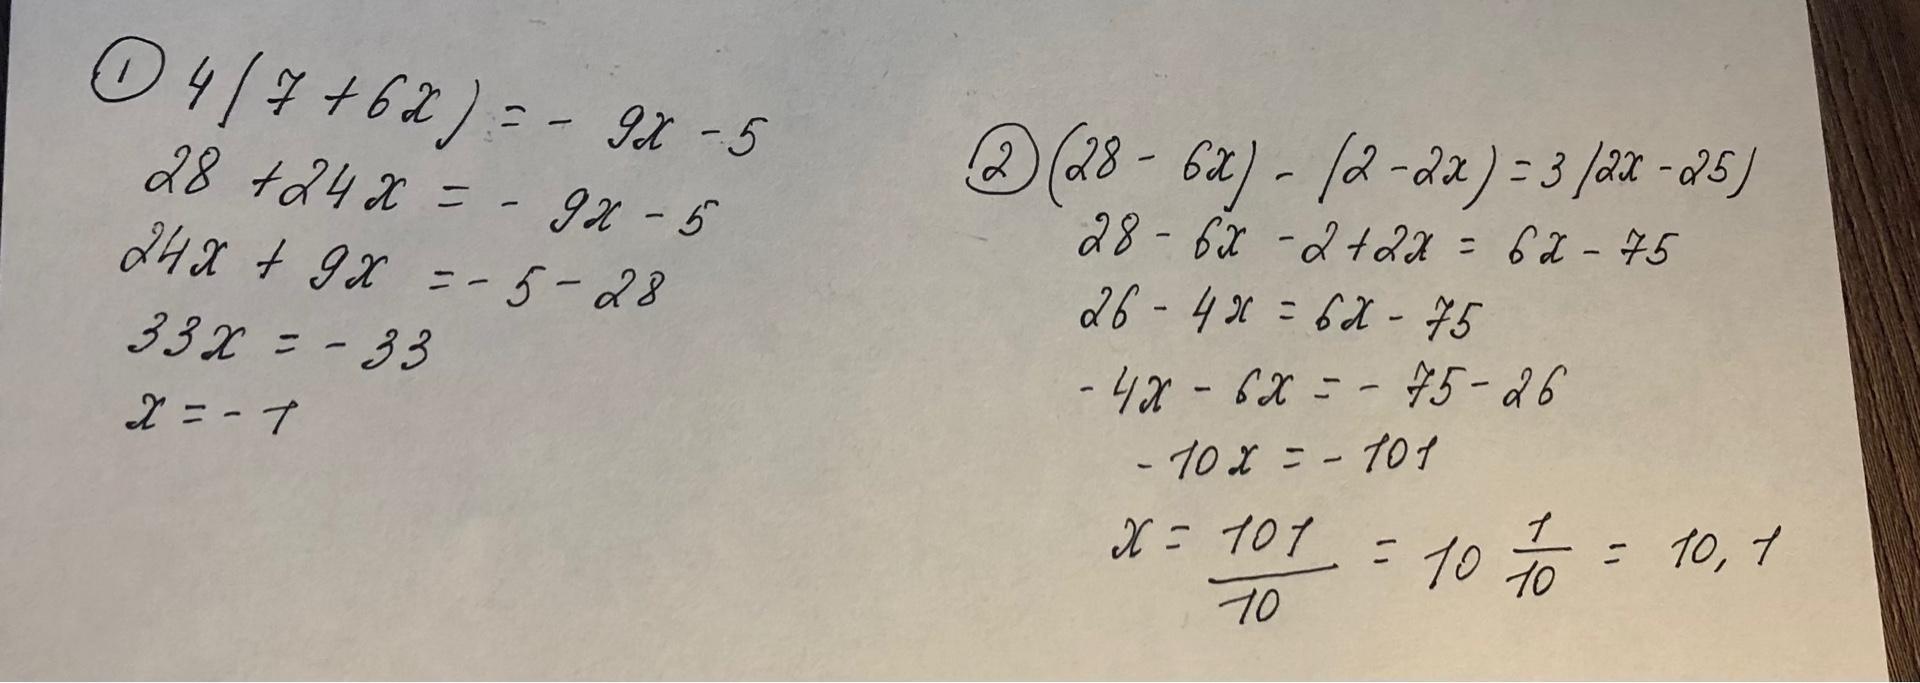 ① 4(7+6x) = - 9x - 5
28 + 24x = - 9x - 5
24x + 9x = - 5 - 28
33x = - 33
x = - 1
② (28 - 6x) - (2 - 2x) = 3(2x - 25)
28 - 6x - 2 + 2x = 6x - 75
26 - 4x = 6x - 75
- 4x - 6x = - 75 - 26
- 10x = - 101
x = 101/10 = 10 1/10 = 10,1